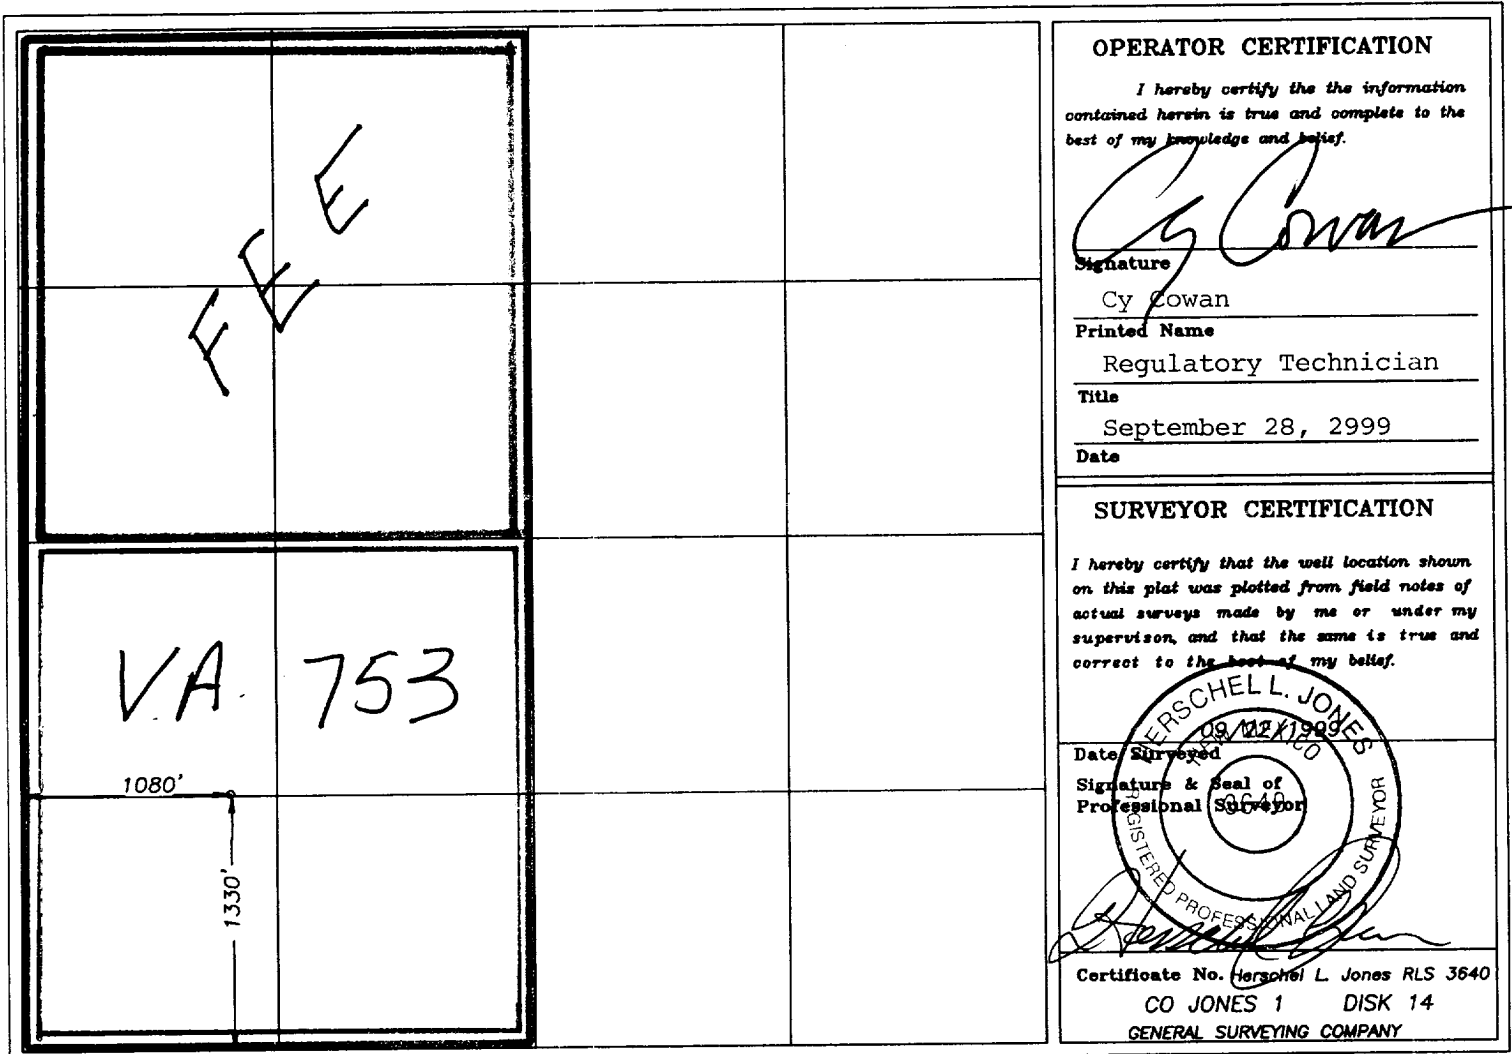 FEE
VA 753
1080'
1330'
OPERATOR CERTIFICATION
I hereby certify the the information
contained herein is true and complete to the
best of my knowledge and belief.
Cy Cowan
Signature
Cy Cowan
Printed Name
Regulatory Technician
Title
September 28, 2999
Date
SURVEYOR CERTIFICATION
I hereby certify that the well location shown
on this plat was plotted from field notes of
actual surveys made by me or under my
supervison, and that the same is true and
correct to the best of my belief.
HERSCHEL L. JONES
NEW MEXICO
09/22/1999
Date Surveyed
Signature & Seal of
Professional Surveyor
3640
REGISTERED PROFESSIONAL LAND SURVEYOR
Certificate No. Herschel L. Jones RLS 3640
CO JONES 1 DISK 14
GENERAL SURVEYING COMPANY